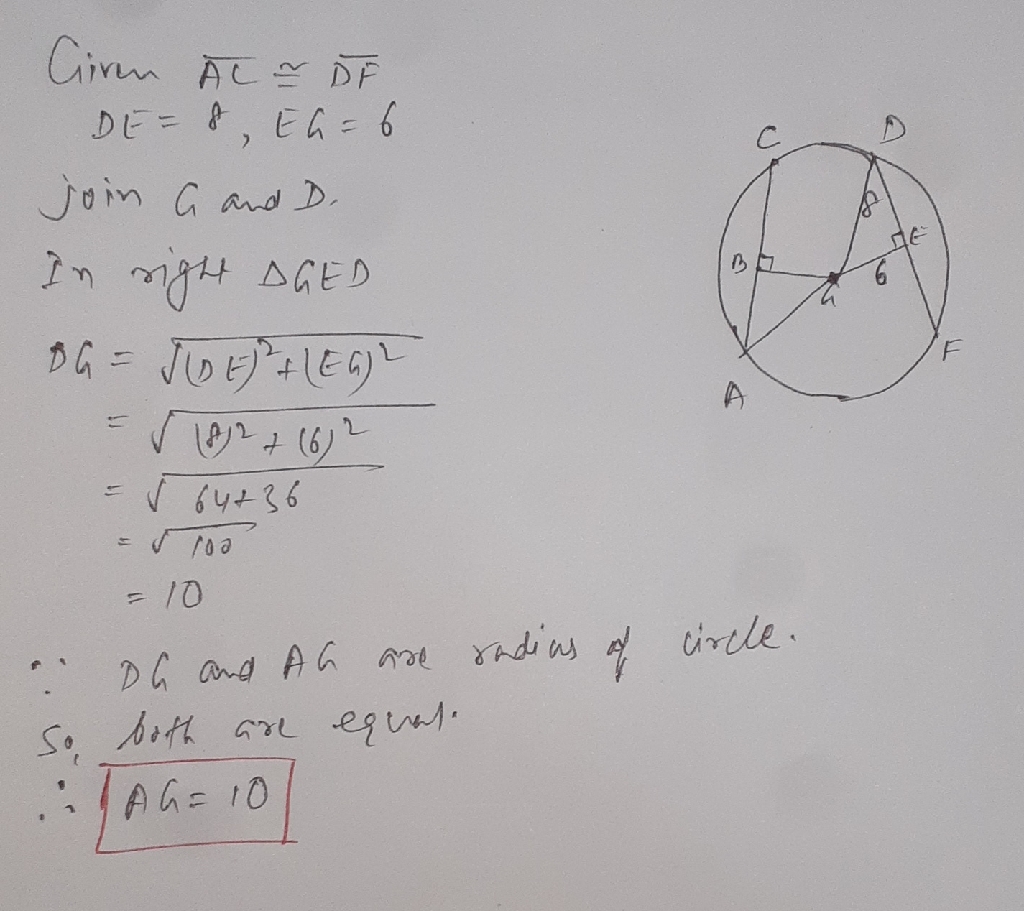 Given AC ≅ DF
DE = 8, EG = 6
join G and D.
In right ΔGED
DG = √(DE)²+(EG)²
= √(8)² + (6)²
= √64+36
= √100
= 10
∵ DG and AG are radius of circle.
So, both are equal.
∴ AG = 10
C
D
8
E
B
6
G
F
A